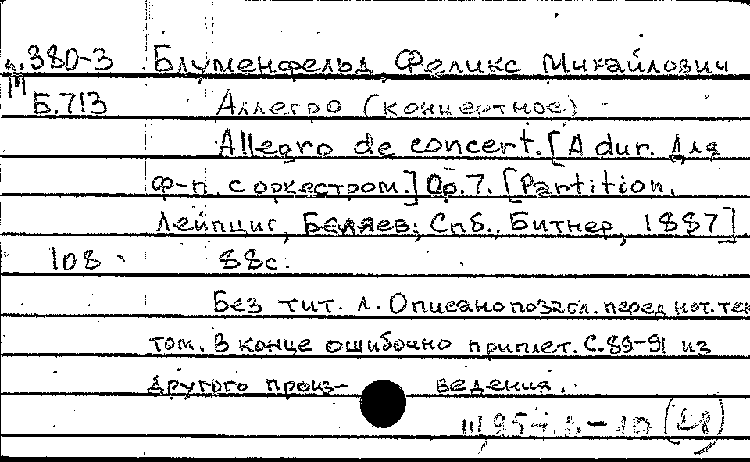 380-3 Блуменфельд, Феликс Михайлович
Б.713 Аллегро (концертное)
Allegro de concert. [A dur. Для
ф-п. с оркестром.] Op. 7. [Partition.
Лейпциг, Беляев; Спб., Битнер, 1887]
108 88с.
Без тит. л. Описано по загл. перед нот. тек
том. В конце ошибочно приплет. С. 89-91 из
другого произ- ведения.